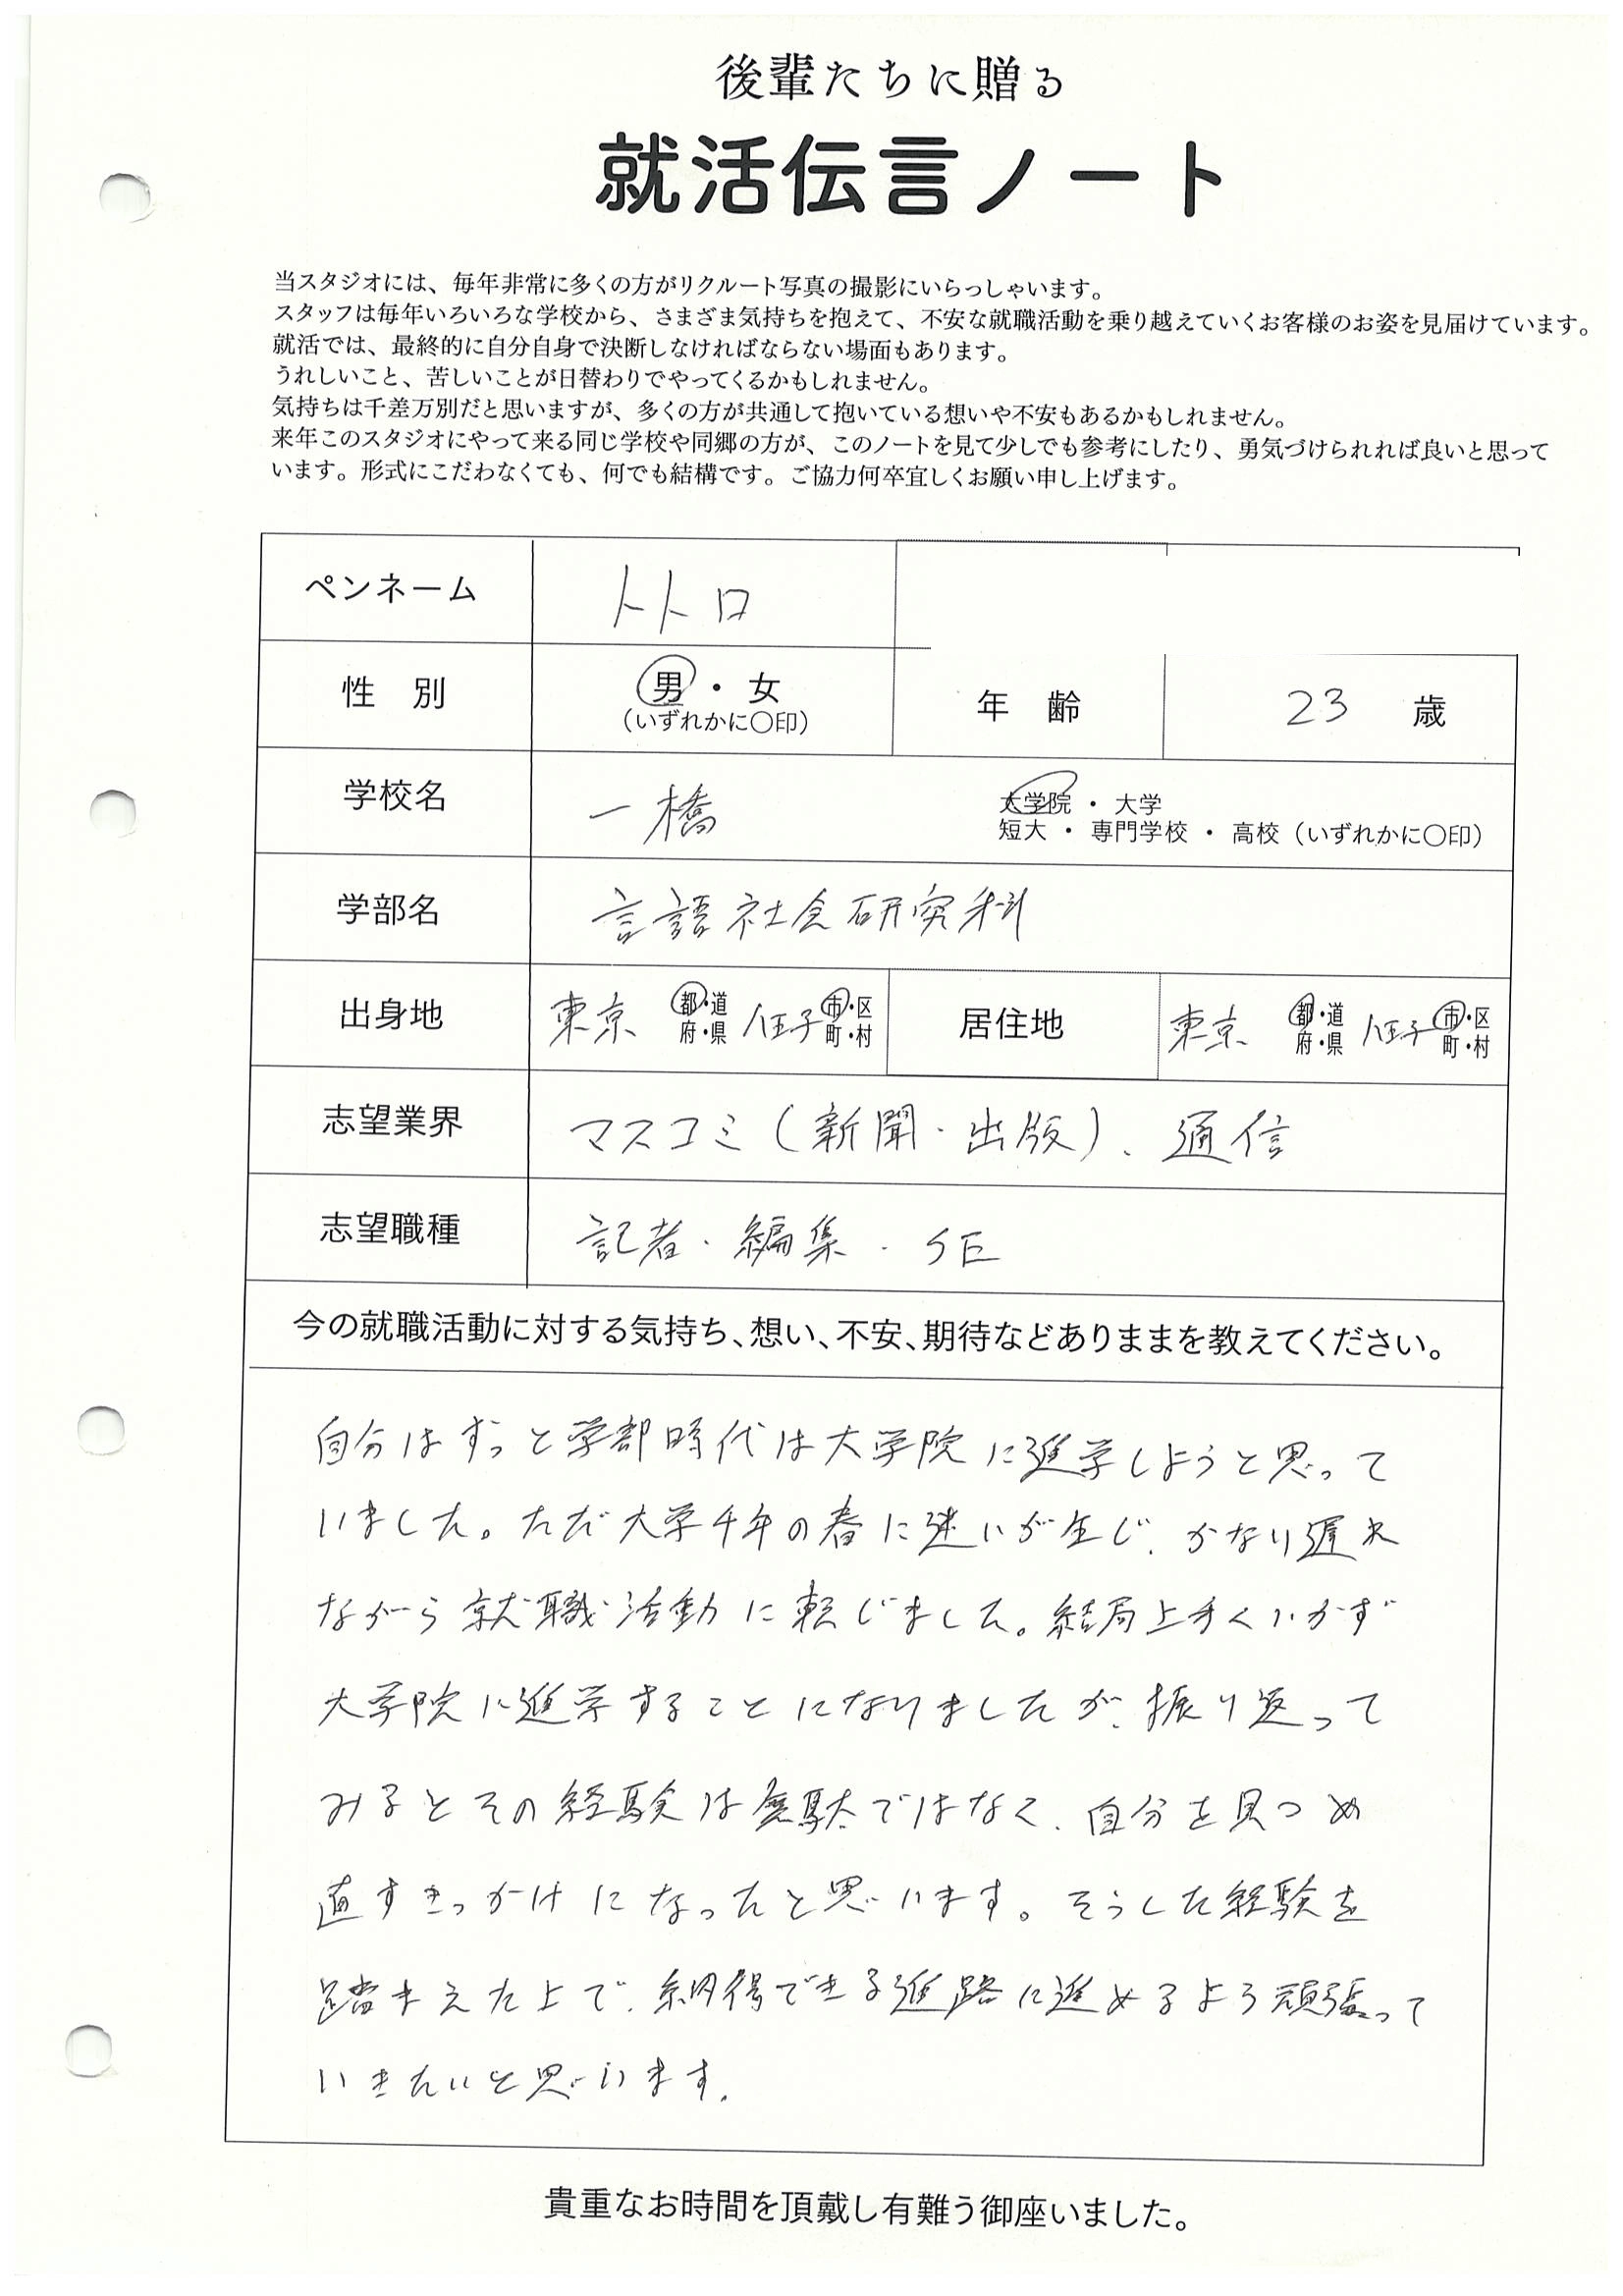 後輩たちに贈る
就活伝言ノート
当スタジオには、毎年非常に多くの方がリクルート写真の撮影にいらっしゃいます。
スタッフは毎年いろいろな学校から、さまざま気持ちを抱えて、不安な就職活動を乗り越えていくお客様のお姿を見届けています。
就活では、最終的に自分自身で決断しなければならない場面もあります。
うれしいこと、苦しいことが日替わりでやってくるかもしれません。
気持ちは千差万別だと思いますが、多くの方が共通して抱いている想いや不安もあるかもしれません。
来年このスタジオにやって来る同じ学校や同郷の方が、このノートを見て少しでも参考にしたり、勇気づけられれば良いと思って
います。形式にこだわなくても、何でも結構です。ご協力何卒宜しくお願い申し上げます。
ペンネーム トトロ
性 別 男・女 年 齢 23 歳
（いずれかに〇印）
学校名 一橋 大学院・大学
短大・専門学校・高校（いずれかに〇印）
学部名 言語社会研究科
出身地 東京 都・道 府・県 八王子 市・区 町・村 居住地 東京 都・道 府・県 八王子 市・区 町・村
志望業界 マスコミ（新聞・出版）、通信
志望職種 記者・編集・SE
今の就職活動に対する気持ち、想い、不安、期待などありままを教えてください。
自分はずっと学部時代は大学院に進学しようと思って
いました。ただ大学4年の春に迷いが生じ、かなり遅れ
ながら就職活動に転じました。結局上手くいかず
大学院に進学することになりましたが、振り返って
みるとその経験は無駄ではなく、自分を見つめ
直すきっかけになったと思います。そうした経験を
踏まえた上で、納得できる進路に進めるよう頑張って
いきたいと思います。
貴重なお時間を頂戴し有難う御座いました。